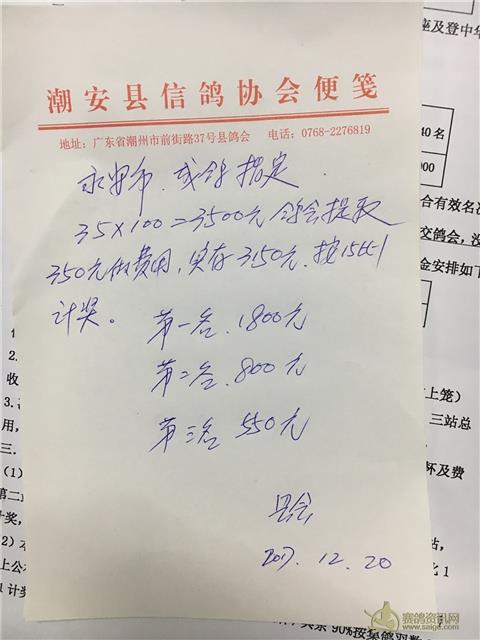 潮安县信鸽协会便笺
地址：广东省潮州市前街路37号县鸽会 电话：0768-2276819
成鸽指定
35×100=3500元 鸽会提取
350元做费用，实存3150元，按15比1
计奖。
第一名、1800元
第二名、800元
第三名 550元
县会
2017.12.20
座及登中华
40名
000
合有效名次
交鸽会，没
金安排如下
上笼）
三站总
杯及费
站，
比1
2.
收
3.
用，
三.
（1）
第二
计奖，
2）
上公
1计奖
赛鸽资讯网
www.saige.com